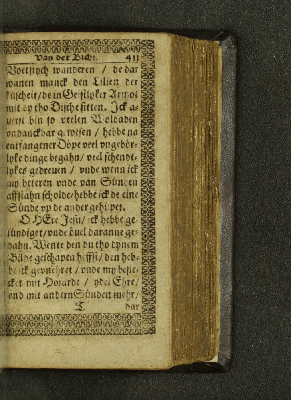 Van der Bicht. 431
wanderen / de dar
wanen manck den Lilien der
mit dy tho Dische sitten. Ick
bin so velen Woldaden
vndanckbar gewesen / hebbe na
entfangener Döpe veel vngebör-
lyke dinge begahn / veel schendt-
lykes gedreuen / vnde wenn ick
my beteren vnde van Sünden
afflahn scholde / hebbe ick de eine
Sünde vp de ander gehüpet.
O HEre Jesu / ick hebbe ge-
sündiget / vnde öuel daranne ge-
dahn. Wente den du tho dynem
Bilde geschapen heffst / den heb-
be ick / vnde my befle-
cket myt Houarde / ydel Ehre /
vnd mit andern Sünden mehr /
T dar